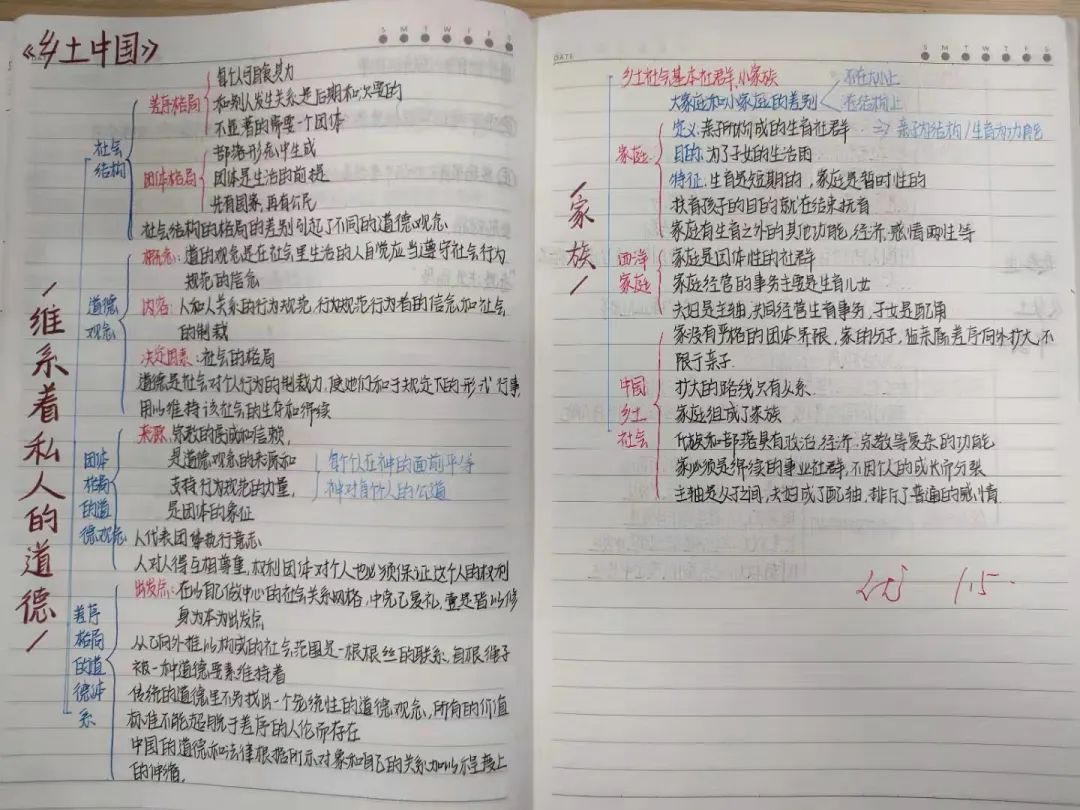 《乡土中国》
DATE
S M T W F F S
维系着私人的道德
社会结构
差序格局
每个人可自食其力
和别人发生关系是后期和次要的
不显著的需要一个团体
团体格局
部落形态中生成
团体是生活的前提
先有国家,再有公民
社会结构的格局的差别引起了不同的道德观念
道德观念
概念:道的观念是在社会里生活的人自觉应当遵守社会行为
规范的信念
内容:人和人关系的行为规范,行为规范行为者的信念和社会
的制裁
决定因素:社会的格局
道德是社会对个人行为的制裁力,使她们和于规定下的形式行事,
用以维持该社会的生存和得续
团体格局的道德观念
来源:宗教的虔诚和信赖,
是道德观念的来源和
支持行为规范的力量,
是团体的象征
每个人在神的面前平等
神对每个人的公道
人代表团体执行意志
人对人得互相尊重,权利团体对个人也必须保证这个人的权利
差序格局的道德体系
出发点:在以自己做中心的社会关系网格,中克己复礼,壹是皆以修
身为本为出发点
从己向外推以构成的社会范围是一根根丝的联系,每根绳子
被一种道德要素维持着
传统的道德里不另找出一个笼统性的道德观念,所有的价值
标准不能超脱于差序的人伦而存在
中国的道德和法律根据所示对象和自己的关系加以程度上
的伸缩.
DATE
S M T W T F S
家族
乡土社会基本社群,小家族
大家庭和小家庭的差别
不在大小上
在结构上
家庭
定义:亲子所构成的生育社群 => 亲子为结构/生育为功能
目的:为了子女的生活而
特征:生育是短期的,家庭是暂时性的
扶育孩子的目的就在结束抚育
家庭有生育之外的其他功能,经济,感情两性等
西洋家庭
家庭是团体性的社群
家庭经营的事务主要是生育儿女
夫妇是主轴,共同经营生育事务,子女是配角
中国乡土社会
家没有严格的团体界限,家的分子,沿亲属差序向外扩大,不
限于亲子.
扩大的路线只有父系.
家庭组成了家族
氏族和部落具有政治,经济,宗教等复杂的功能
家必须是绵续的事业社群,不因个人的成长而分裂
主轴是父子之间,夫妇成了配轴,排斥了普通的感情
优 1.5.